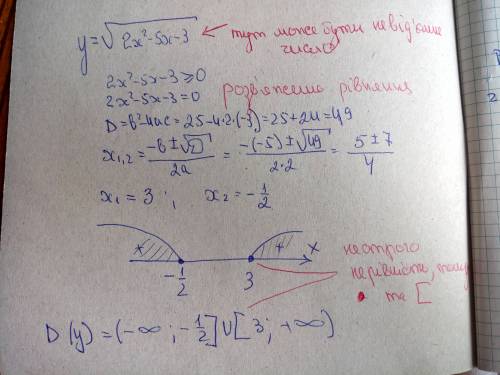 y=√2x²-5x-3 ← тут може бути невід'ємне
число
2x²-5x-3⩾0
2x²-5x-3=0 розв'яжемо рівняння
D=b²-4ac=25-4·2·(-3)=25+24=49
x₁,₂=(-b±√D)/2a=(-(-5)±√49)/2·2=(5±7)/4
x₁=3; x₂=-1/2
+ + x
-1/2 3
нестрого
нерівність, тому
• та [
D(y)=(-∞;-1/2]∪[3;+∞)